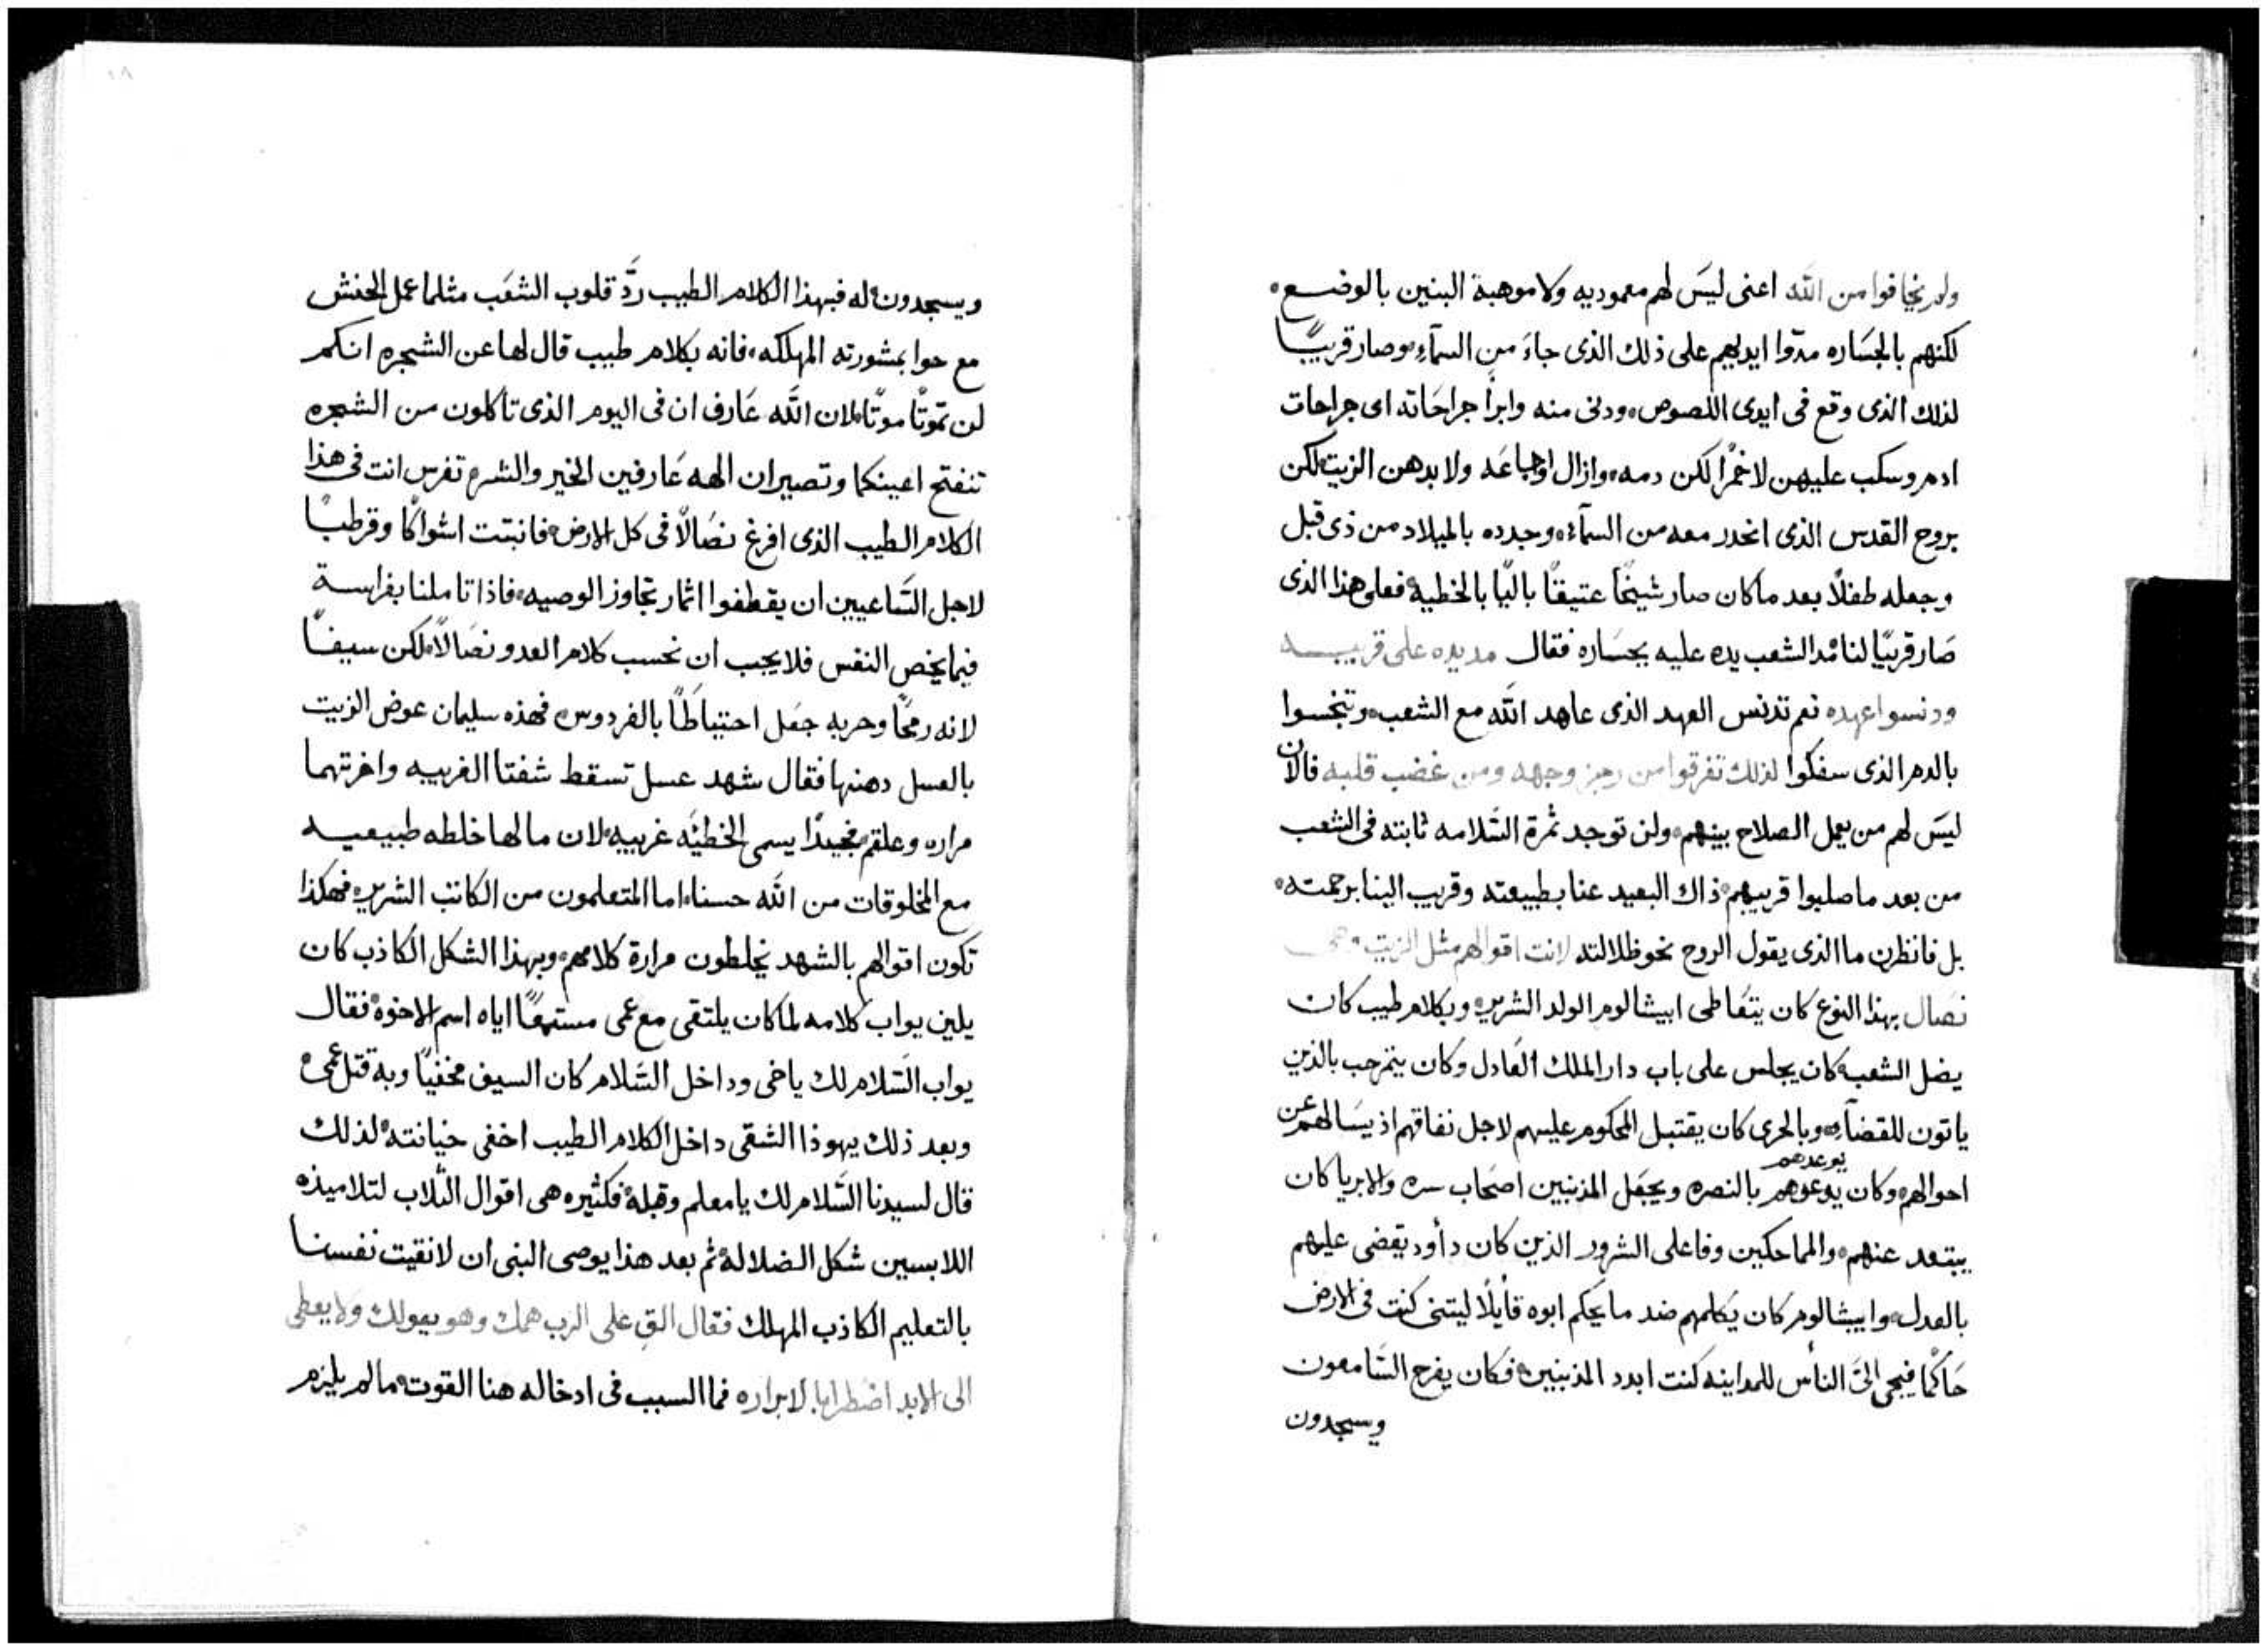 ولم يخافوا من الله اعنى ليسَ لهم معموديه ولا موهبة البنين بالوضع
لكنهم بالجسَاره مدّوا ايديهم على ذلك الذى جاءَ من السمآءِ وصار قريبًا
لذلك الذى وقع فى ايدى اللصوص ودنى منه وابرأ جراحَاته اى جراحات
ادم وسكب عليهن لا خمرًا لكن دمه وازال اوجاعَه ولا بدهن الزيت لكن
بروح القدس الذى انحدر معه من السمآء وجدده بالميلاد من ذى قبل
وجعله طفلًا بعد ما كان صار شيخًا عتيقًا باليًا بالخطيه فعلى هذا الذى
صَار قريبًا لنا مَد الشعب يده عليه بجسَاره فقال مد يده على قريبه
ودنسوا عهده نعم تدنس العهد الذى عاهد الله مع الشعب وتنجسوا
بالدم الذى سفكوا لذلك تفرقوا من رجز وجهه ومن غضب قلبه فالان
ليسَ لهم من يعمل الصلاح بينهم ولن توجد ثمرة السَّلامه ثابته فى الشعب
من بعد ما صلبوا قريبهم ذاك البعيد عنا بطبيعته وقريب الينا برحمته
بل فانظرن ما الذى يقول الروح نحو ظلالته لانت اقوالهم مثل الزيت وهى
نصَال بهذا النوع كان يتعَاطى ابيشالوم الولد الشرير وبكلام طيب كان
يضل الشعب كان يجلس على باب دار الملك العَادل وكان يترحب بالذين
ياتون للقضآء وبالحرى كان يقتبل المحكوم عليهم لاجل نفاقهم اذ يسَالهم عن
احوالهم وكان يدعوهم بالنصره ويجعَل المذنبين اصحَاب سره والابريا كان
يوعدهم
يبتعد عنهم والمماحكين وفاعلى الشرور الذين كان دأود يقضى عليهم
بالعدل وابيشالوم كان يكلمهم ضد ما يحكم ابوه قأيلًا ليتنى كنت فى الارض
حَاكمًا فيجى الىَّ الناس للمداينه كنت ابدد المذنبين فكان يفرح السَّامعون
ويسجدون
ويسجدون له فبهذا الكلام الطيب ردَّ قلوب الشعَب مثلما عمل الحنش
مع حوا بمشورته المهلكه فانه بكلام طيب قال لها عن الشجره انكم
لن تموتًا موتًا لان الله عَارف ان فى اليوم الذى تاكلون من الشجره
تنفتح اعينكما وتصيران الهه عَارفين الخير والشر تفرس انت فى هذا
الكلام الطيب الذى افرغ نصَالًا فى كل الارض فانبتت اشواكًا وقرطبًا
لاجل السَّاعيين ان يقطفوا اثمار تجاوز الوصيه فاذا تاملنا بفراسة
فيما يخص النفس فلا يجب ان نحسب كلام العدو نصَالًا لكن سيفًا
لانه رمحًا وحربه جعَل احتياطًا بالفردوس فهذه سليمان عوض الزيت
بالعسل دهنها فقال شهد عسل تسقط شفتا الغريبه واخرتهما
مراره وعلقم فجيدًا يسمى الخطيَّه غريبه لان ما لها خلطه طبيعيه
مع المخلوقات من الله حسنا اما المتعلمون من الكاتب الشرير فهكذا
تكون اقوالهم بالشهد يخلطون مرارة كلامهم وبهذا الشكل الكاذب كان
يلين يواب كلامه لما كان يلتقى مع عمى مستمعًا اياه اسم الاخوه فقال
يواب السَّلام لك ياخى وداخل السَّلام كان السيف مخفيًا وبه قتل عمى
وبعد ذلك يهوذا الشقى داخل الكلام الطيب اخفى خيانته لذلك
قال لسيدنا السَّلام لك يا معلم وقبله فكثيره هى اقوال الثلاب لتلاميذه
اللابسين شكل الضلاله ثم بعد هذا يوصى النبى ان لا نقيت نفسنا
بالتعليم الكاذب المهلك فقال القِ على الرب همك وهو يعولك ولا يعطى
الى الابد اضطرابا لابراره فما السبب فى ادخاله هنا القوت ما لم يلزم